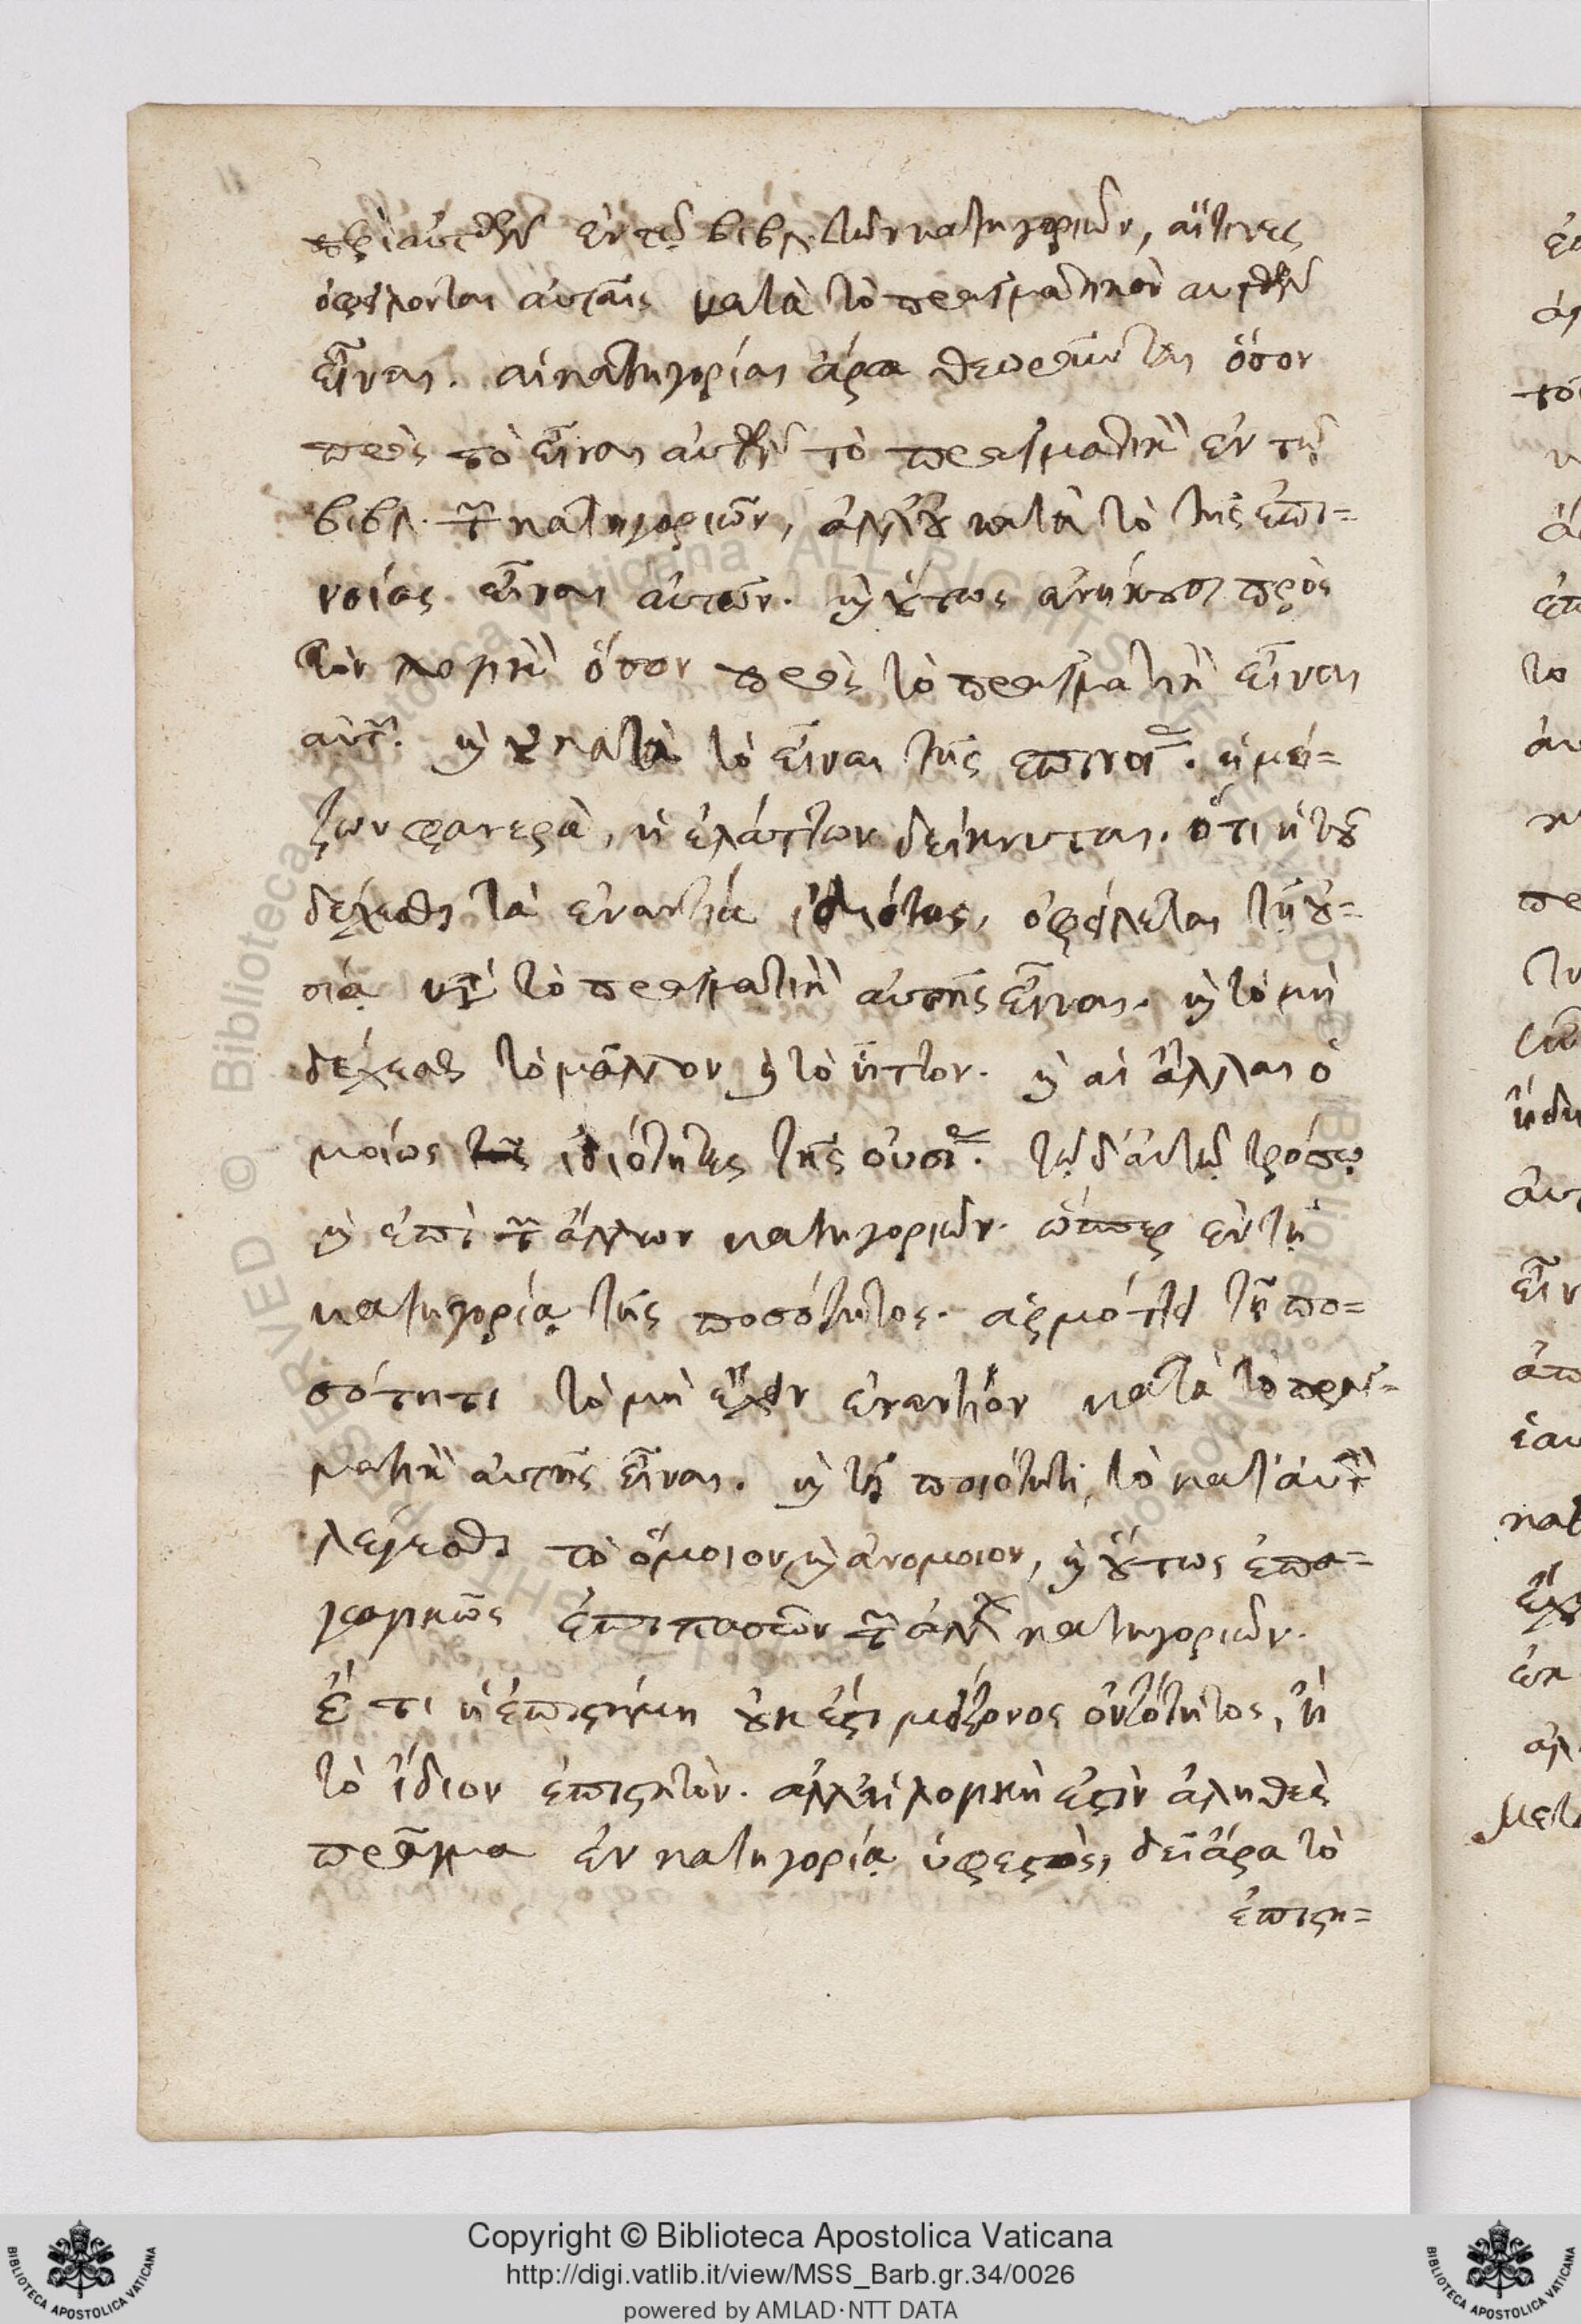 περὶ αὐτῶν ἐν τῷ βιβλ. τῶν κατηγοριῶν, αἵτινες
ὀφείλονται αὐταῖς κατὰ τὸ πραγματικὸν αὐτῶν
εἶναι. αἱ κατηγορίαι ἄρα θεωροῦνται ὅσον
πρὸς τὸ εἶναι αὐτῶν τὸ πραγματικὸν ἐν τῷ
βιβλ. τῶν κατηγοριῶν, ἀλλ' οὐ κατὰ τὸ τῆς ἐπι=
νοίας εἶναι αὐτῶν. καὶ οὕτως ἀνήκουσι πρὸς
τὸν λογικὸν ὅσον πρὸς τὸ πραγματικὸν εἶναι
αὐτῶν. καὶ οὐ κατὰ τὸ εἶναι τῆς ἐπινοίας. ἡ μεί=
ζων φανερὰ, ἡ ἐλάττων δείκνυται. ὅτι ἡ τοῦ
δέχεσθαι τὰ ἐναντία ἰδιότης, ὀφείλεται τῇ οὐ=
σίᾳ κατὰ τὸ πραγματικὸν αὐτῆς εἶναι. καὶ τὸ μὴ
δέχεσθαι τὸ μᾶλλον καὶ τὸ ἧττον. καὶ αἱ ἄλλαι ὁ
μοίως ἰδιότητες τῆς οὐσίας. τῷ δ' αὐτῷ τρόπῳ
καὶ ἐπὶ τῶν ἄλλων κατηγοριῶν. ὥσπερ ἐν τῇ
κατηγορίᾳ τῆς ποσότητος. ἁρμόττει τῇ πο=
σότητι τὸ μὴ ἔχειν ἐναντίον κατὰ τὸ πραγ=
ματικὸν αὐτῆς εἶναι. καὶ τῇ ποιότητι, τὸ κατ' αὐτὴν
λέγεσθαι τὸ ὅμοιον καὶ ἀνόμοιον, καὶ οὕτως ἐπα=
γωγικῶς ἐπὶ πασῶν τῶν ἄλλων κατηγοριῶν.
ἔτι ἡ ἐπιστήμη οὐκ ἔστι μείζονος ὀντότητος, ἢ
τὸ ἴδιον ἐπιστητόν. ἀλλ' ἡ λογικὴ ἐστὶν ἀληθὲς
πρᾶγμα ἐν κατηγορίᾳ ὑφεστὸς, δεῖ ἄρα τὸ
ἐπιστη=
Copyright © Biblioteca Apostolica Vaticana
http://digi.vatlib.it/view/MSS_Barb.gr.34/0026
powered by AMLAD·NTT DATA